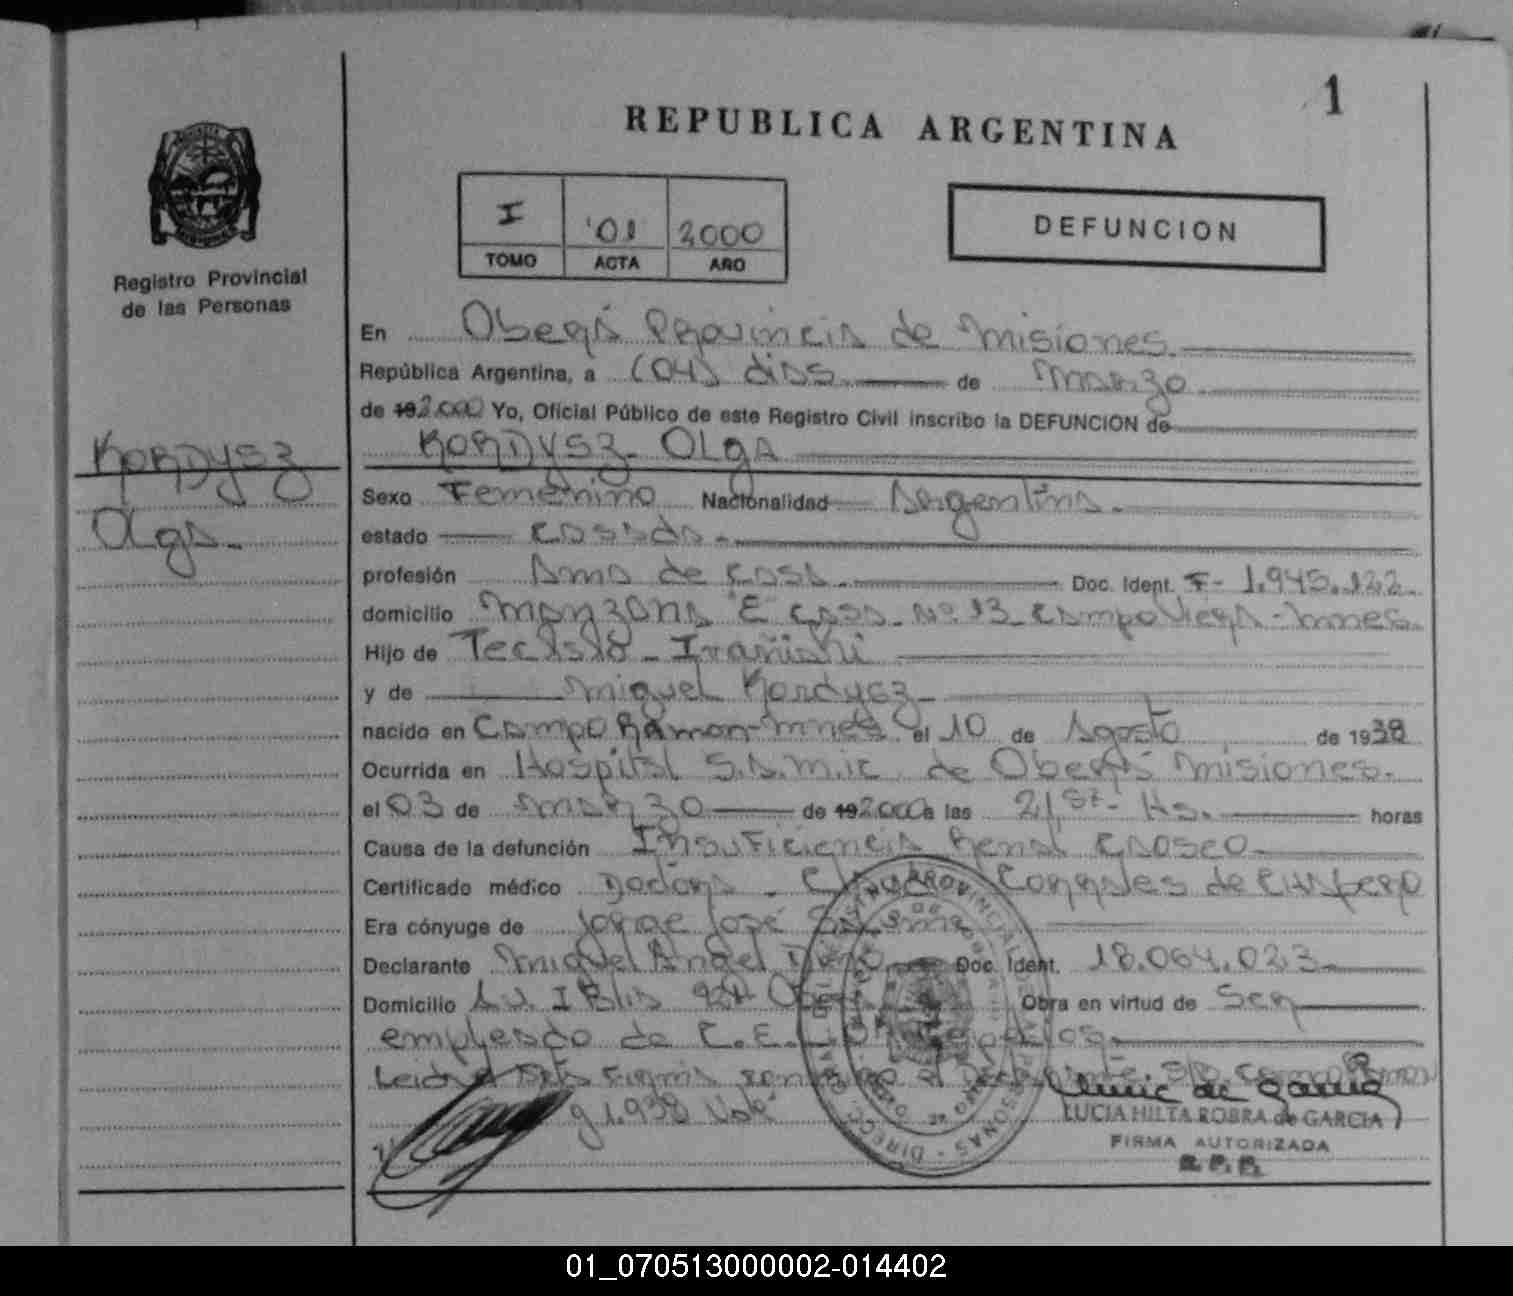 1
REPUBLICA ARGENTINA
I '01 2000
TOMO ACTA AÑO
DEFUNCION
Registro Provincial
de las Personas
En Oberá Provincia de Misiones.
República Argentina, a (04) dias de Marzo
de 192.000 Yo, Oficial Público de este Registro Civil inscribo la DEFUNCION de
KORDYSZ Olga
KORDYSZ
Olga.
Sexo Femenino Nacionalidad Argentina.
estado casada.
profesión Ama de casa. Doc. Ident. F- 1.945.122.
domicilio Manzana "E" casa Nº 13 Campo Viera - Mnes.
Hijo de Teclsia
y de Miguel Kordysz
nacido en Campo Ramon - Mnes el 10 de Agosto de 1938
Ocurrida en Hospital S.A.M.ic. de Oberá Misiones.
el 03 de Marzo de 192000 a las 21, Hs. horas
Causa de la defunción Insuficiencia Renal
Certificado médico Doctora Corrales de
Era cónyuge de Jorge José
Declarante Miguel Angel Doc. Ident. 18.064.023
Domicilio Av. Oberá Obra en virtud de Ser
empleado de C.E.
Leida el Acta Firma el Declarante. S/R
g 1.938 Vale
LUCIA HILTA ROBRA de GARCIA
FIRMA AUTORIZADA
R.P.P.
01_070513000002-014402